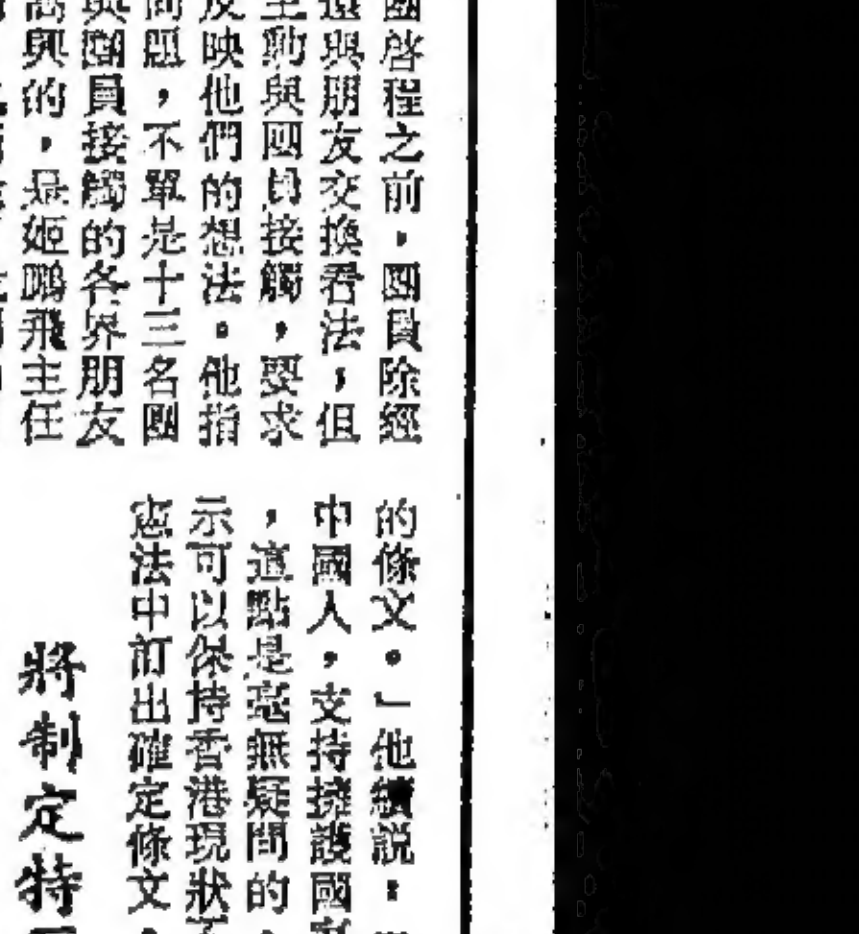 團啓程之前，團員除經
與朋友交換看法，但
主動與團員接觸，要求
反映他們的想法。他指
問題，不單是十三名團
與團員接觸的各界朋友
高興的，是姬鵬飛主任
的條文。」他續説：
中國人，支持擁護國家
，這點是毫無疑問的
示可以保持香港現狀不
憲法中訂出確定條文
將制定特